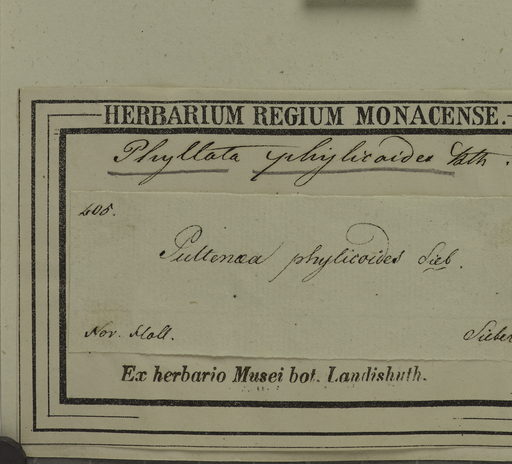 HERBARIUM REGIUM MONACENSE.
Phyllota phylicoides Bth.
405.
Pultenaea phylicoides Sieb.
Nov. Holl.
Sieber
Ex herbario Musei bot. Landishuth.